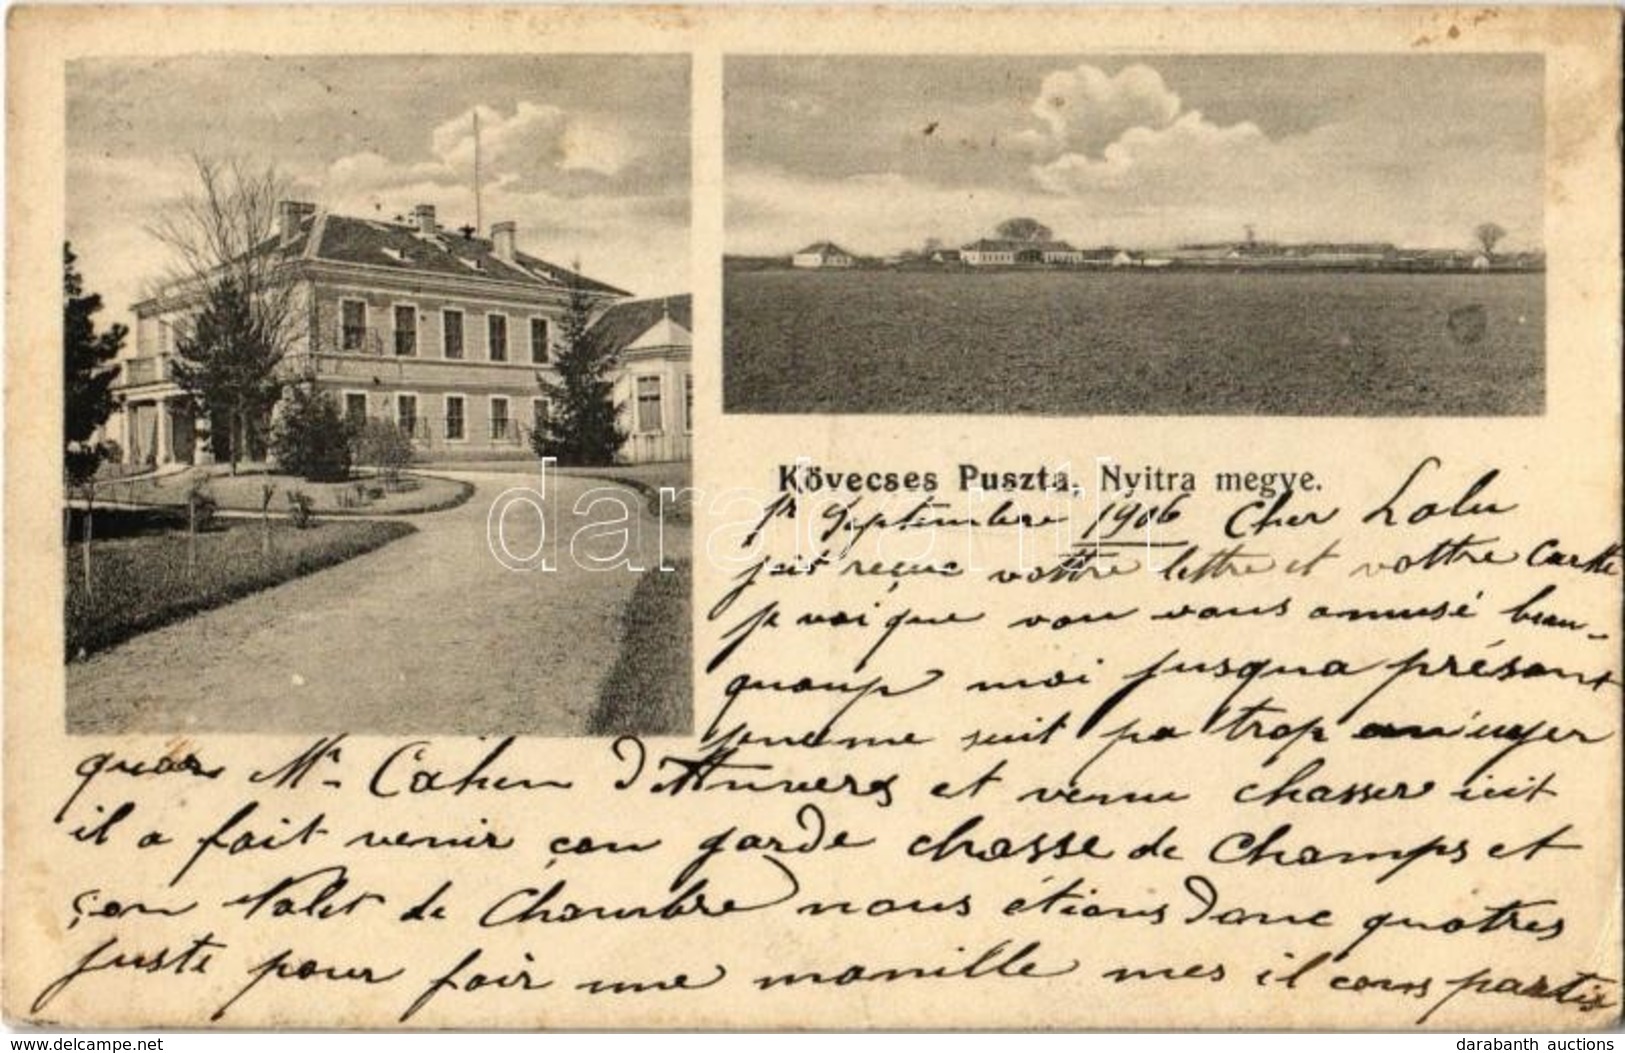 Kövecses Puszta, Nyitra megye.
1r Septembre 1906 Cher Lolu
jait reçue vottre lettre et vottre Cartte
je voi que vou vous amusé beau-
quoup moi jusqua présant
jeneme suit pa trop anuyer
quar Mr Cahen d'Anvers et venu chasser isit
il a fait venir çon garde chasse de Champs et
çon Valet de Chambre nous étions donc quattres
juste pour fair une manille mes il cons partis
darabanth
delcampe.net
darabanth auctions